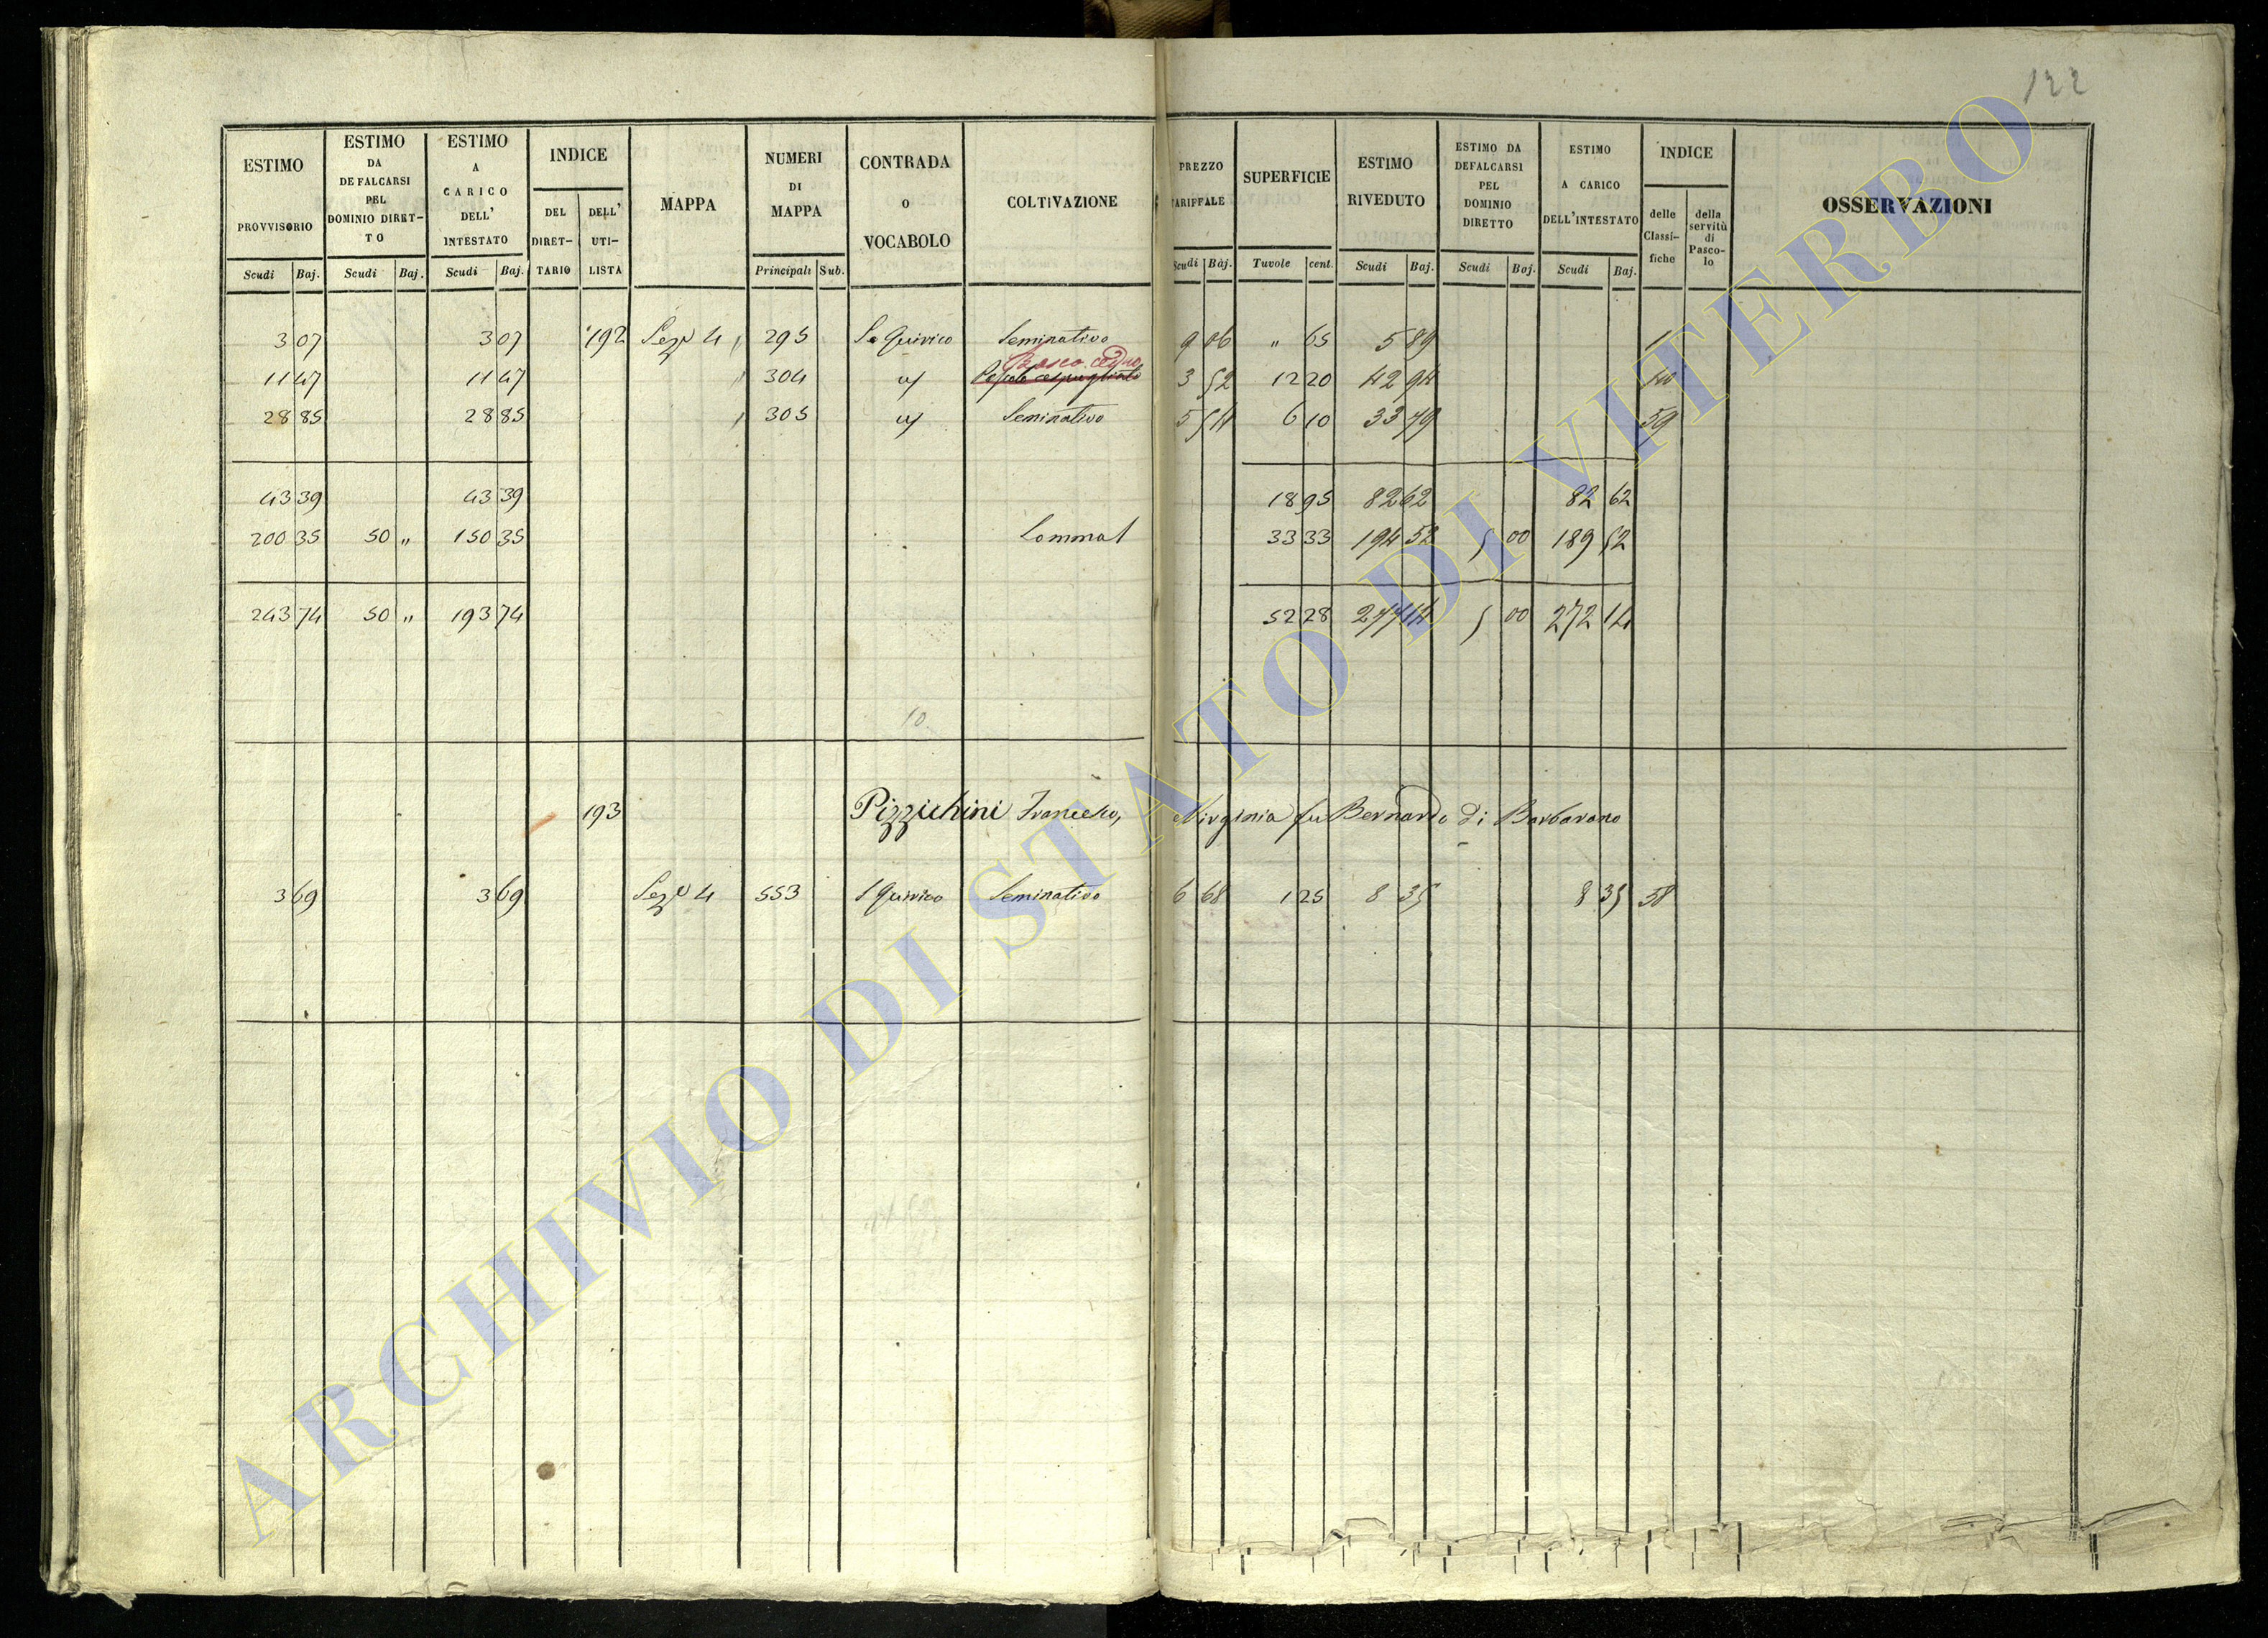 122
ESTIMO PROVVISORIO Scudi Baj.
ESTIMO DA DEFALCARSI PEL DOMINIO DIRETTO Scudi Baj.
ESTIMO A CARICO DELL' INTESTATO Scudi Baj.
INDICE DEL DIRETTARIO DELL' UTILISTA
MAPPA
NUMERI DI MAPPA Principali Sub.
CONTRADA O VOCABOLO
COLTIVAZIONE
PREZZO TARIFFALE Scudi Baj.
SUPERFICIE Tavole cent.
ESTIMO RIVEDUTO Scudi Baj.
ESTIMO DA DEFALCARSI PEL DOMINIO DIRETTO Scudi Baj.
ESTIMO A CARICO DELL'INTESTATO Scudi Baj.
INDICE delle Classifiche della servitù di Pascolo
OSSERVAZIONI
3 07 3 07 192 Sez 4 295 S. Quirico Seminativo 9 06 " 65 5 89
Bosco ceduo
11 47 11 47 304 Pascolo cespugliato 3 52 12 20 42 94 40
28 85 28 85 305 Seminativo 5 54 6 10 33 79 59
43 39 43 39 18 95 82 62 82 62
200 35 50 " 150 35 Somma 33 33 194 52 5 00 189 52
243 74 50 " 193 74 52 28 277 14 5 00 272 14
10
193 Pizzichini Francesco, Virginia fu Bernardo di Barbarano
3 69 3 69 Sez 4 553 S Quirico Seminativo 6 68 1 25 8 35 8 35 58
ARCHIVIO DI STATO DI VITERBO